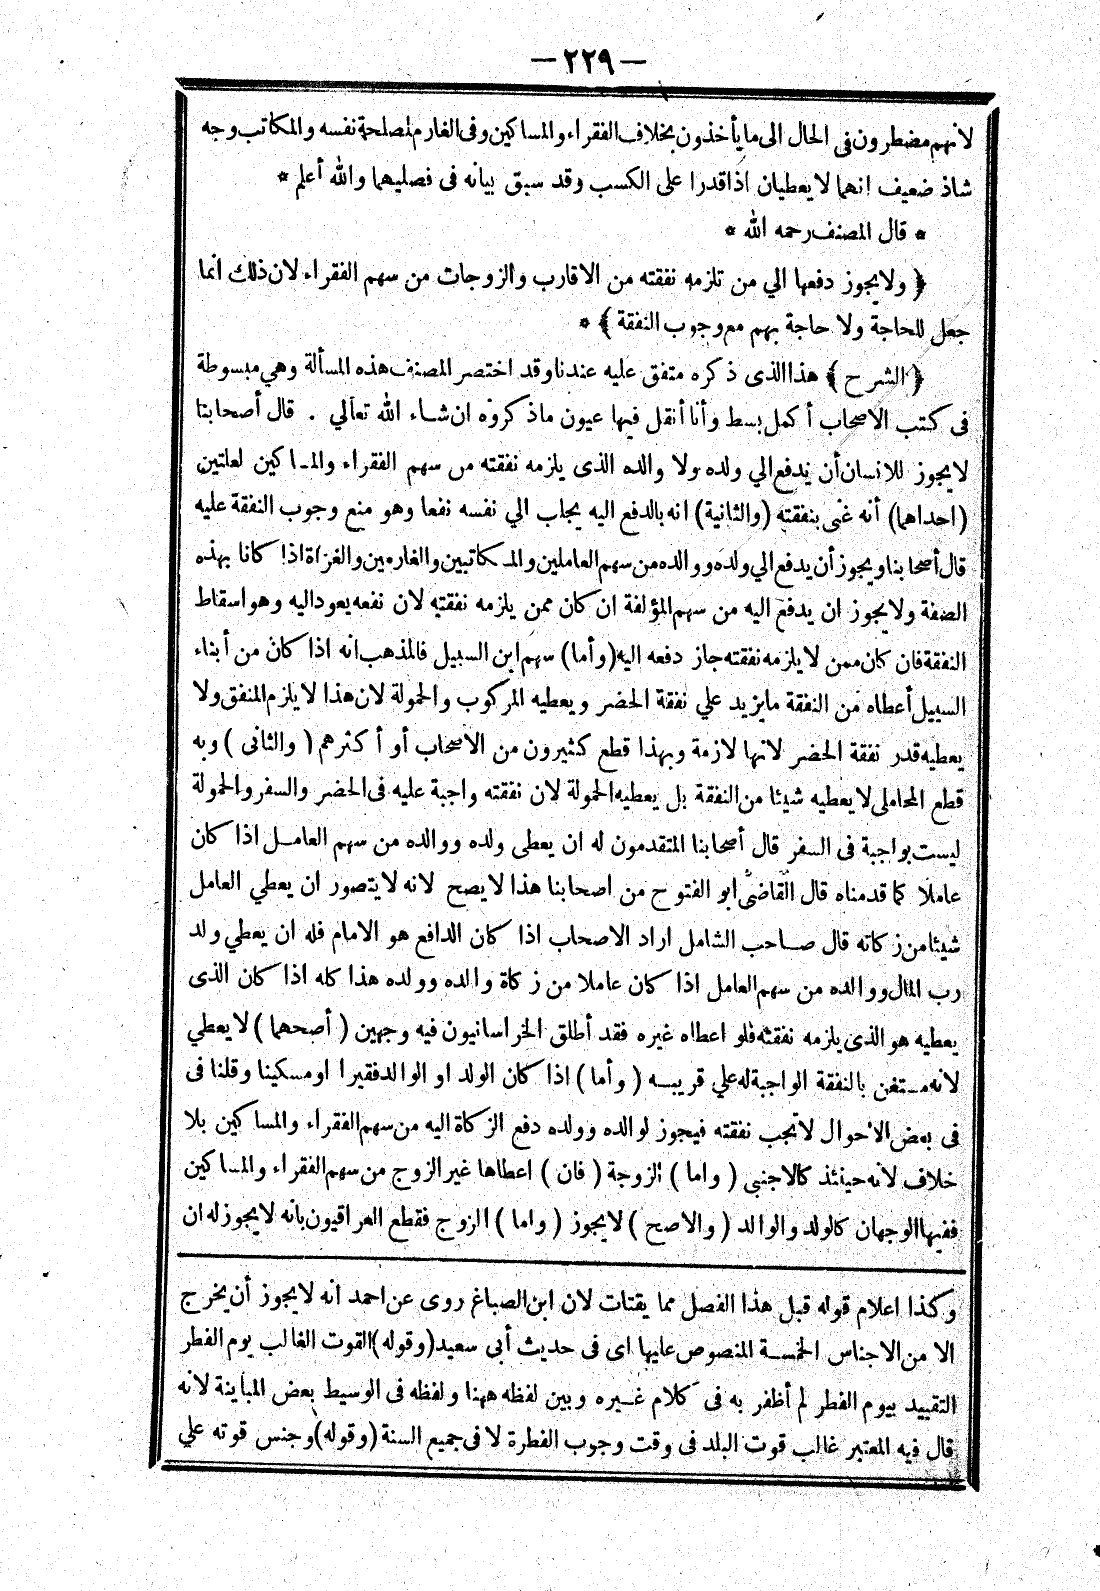 —٢٢٩—
لانهم مضطرون فى الحال الى ما يأخذون بخلاف الفقراء والمساكين وفى الغارم لمصلحة نفسه والمكاتب وجه
شاذ ضعيف انهما لا يعطيان اذا قدرا على الكسب وقد سبق بيانه فى فصليهما والله أعلم *
* قال المصنف رحمه الله *
﴿ ولا يجوز دفعها الي من تلزمه نفقته من الاقارب والزوجات من سهم الفقراء لان ذلك انما
جعل للحاجة ولا حاجة بهم مع وجوب النفقة ﴾ *
﴿ الشرح ﴾ هذا الذى ذكره متفق عليه عندنا وقد اختصر المصنف هذه المسألة وهي مبسوطة
فى كتب الاصحاب أكمل بسط وأنا أنقل فيها عيون ماذكروه ان شاء الله تعالي . قال أصحابنا
لا يجوز للانسان أن يدفع الي ولده ولا والده الذى يلزمه نفقته من سهم الفقراء والمساكين لعلتين
(احداهما) أنه غنى بنفقته (والثانية) انه بالدفع اليه يجلب الي نفسه نفعا وهو منع وجوب النفقة عليه
قال أصحابنا ويجوز أن يدفع الي ولده ووالده من سهم العاملين والمكاتبين والغارمين والغزاة اذا كانا بهذه
الصفة ولا يجوز ان يدفع اليه من سهم المؤلفة ان كان ممن يلزمه نفقته لان نفعه يعود اليه وهو اسقاط
النفقة فان كان ممن لا يلزمه نفقته جاز دفعه اليه (وأما) سهم ابن السبيل فالمذهب انه اذا كان من أبناء
السبيل أعطاه من النفقة ما يزيد علي نفقة الحضر ويعطيه المركوب والحمولة لان هذا لا يلزم المنفق ولا
يعطيه قدر نفقة الحضر لانها لازمة وبهذا قطع كثيرون من الاصحاب أو أكثرهم ( والثانى ) وبه
قطع المحاملى لا يعطيه شيئا من النفقة بل يعطيه الحمولة لان نفقته واجبة عليه فى الحضر والسفر والحمولة
ليست بواجبة فى السفر قال أصحابنا المتقدمون له ان يعطى ولده ووالده من سهم العامل اذا كان
عاملا كما قدمناه قال القاضى ابو الفتوح من اصحابنا هذا لا يصح لانه لا يتصور ان يعطي العامل
شيئا من زكاته قال صاحب الشامل اراد الاصحاب اذا كان الدافع هو الامام فله ان يعطي ولد
رب المال ووالده من سهم العامل اذا كان عاملا من زكاة والده وولده هذا كله اذا كان الذى
يعطيه هو الذى يلزمه نفقته فلو اعطاه غيره فقد أطلق الخراسانيون فيه وجهين ( أصحهما ) لا يعطي
لانه مستغن بالنفقة الواجبة له علي قريبه ( وأما ) اذا كان الولد او الوالد فقيرا او مسكينا وقلنا فى
فى بعض الاحوال لا تجب نفقته فيجوز لوالده وولده دفع الزكاة اليه من سهم الفقراء والمساكين بلا
خلاف لانه حينئذ كالاجنبى ( واما ) الزوجة ( فان ) اعطاها غير الزوج من سهم الفقراء والمساكين
ففيها الوجهان كالولد والوالد ( والاصح ) لا يجوز ( واما ) الزوج فقطع العراقيون بانه لا يجوز له ان
وكذا اعلام قوله قبل هذا الفصل مما يقتات لان ابن الصباغ روى عن احمد انه لا يجوز أن يخرج
الا من الاجناس الخمسة المنصوص عليها اى فى حديث أبى سعيد (وقوله) القوت الغالب يوم الفطر
التقييد بيوم الفطر لم أظفر به فى كلام غيره وبين لفظه ههنا ولفظه فى الوسيط بعض المباينة لانه
قال فيه المعتبر غالب قوت البلد فى وقت وجوب الفطرة لا فى جميع السنة (وقوله) وجنس قوته علي